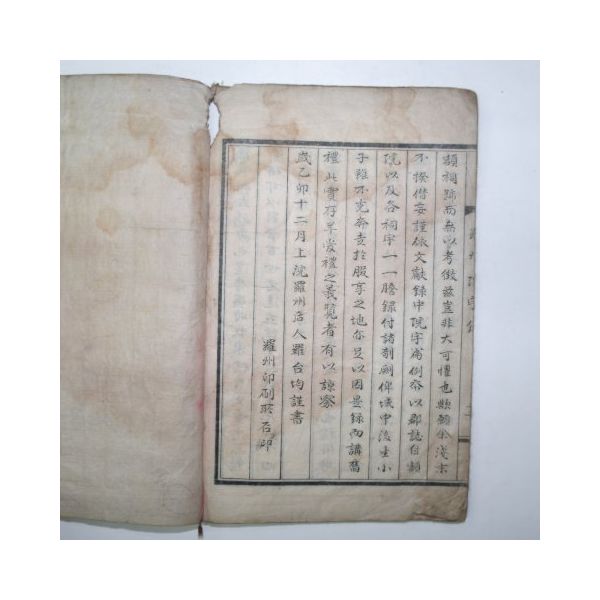 額祠號而無以考徵玆豈非大可懼也歟顧余淺末
不揆僭妄謹依文獻錄中院宇篇例叅以郡誌自額
院以及各祠宇一一謄錄付諸剞劂俾域中後生小
子雖不克奔走於服享之地亦足以因是錄而講舊
禮此實存羊愛禮之義覽者有以諒察
歲乙卯十二月上浣羅州后人羅台均謹書
羅州印刷所石印